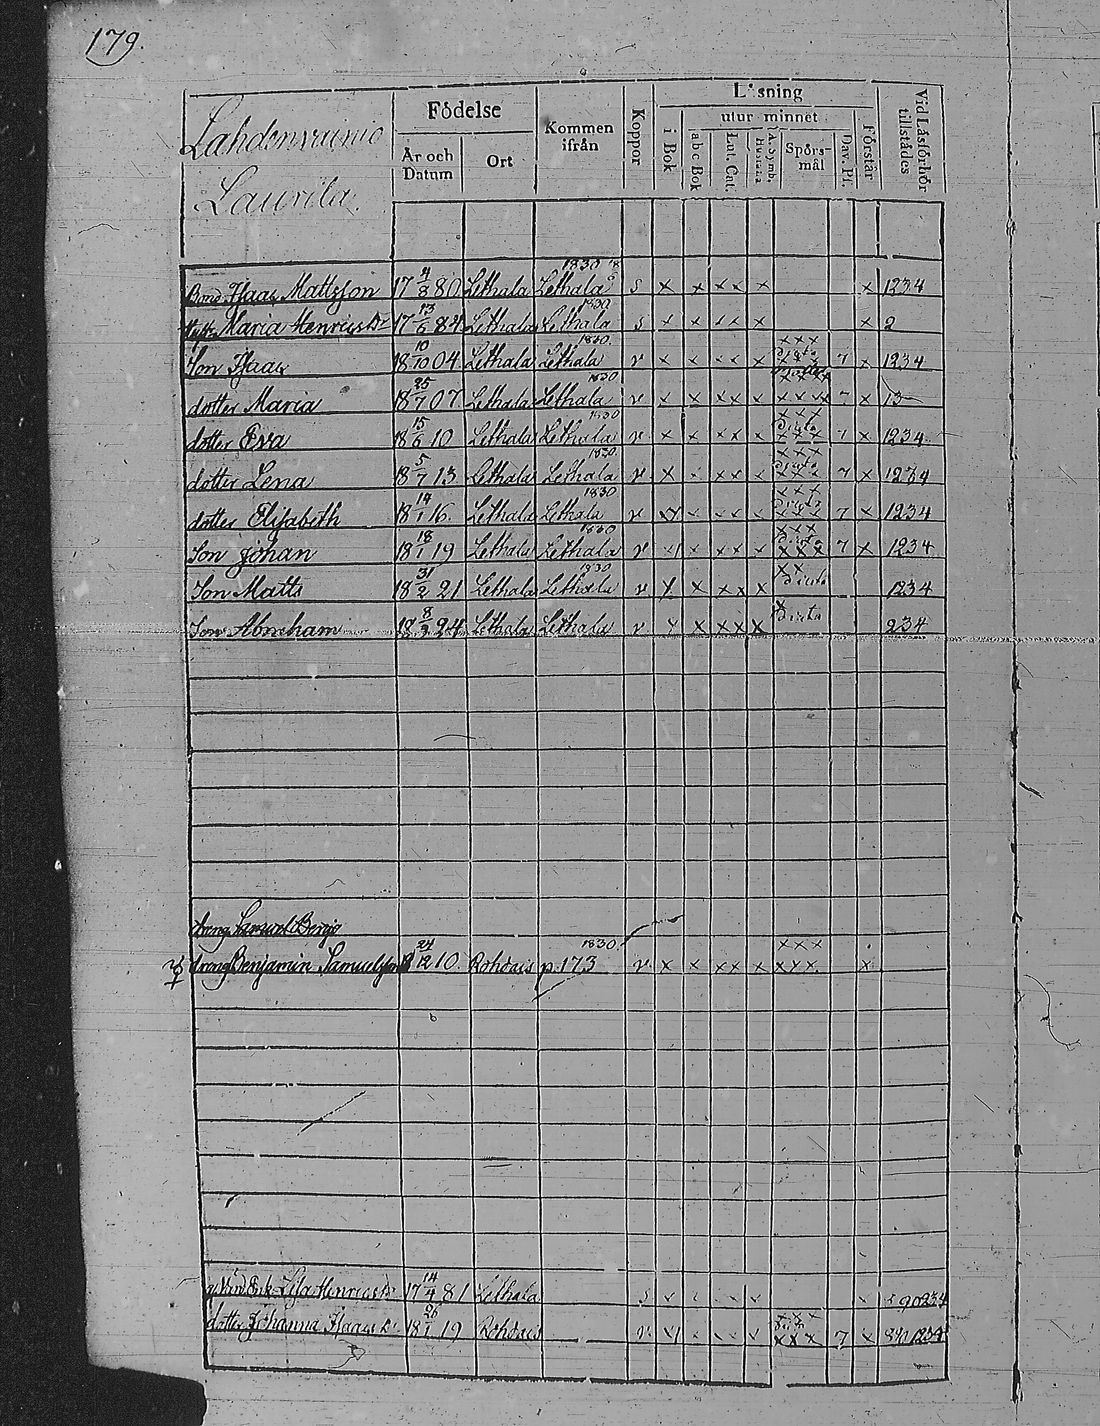 179.
Lahdenvainio
Laurila.
Födelse
År och Datum
Ort
Kommen ifrån
Koppor
Läsning
i Bok
utur minnet
abc Bok
Lut. Cat.
A. Symb.
Hustafla
Spörsmål
Dav. Ps.
Förstår
Vid Läsförhör tillstädes
Bond. Isaac Mattsson 17 4/8 80 Lethala Lethala 1830 s x x xx x 1234
Maria Henricsdr 17 13/6 84 Lethala Lethala 1830 s x x xx x x 2
Son Isaac 18 10/10 04 Lethala Lethala 1830 v x x xx x xxx 7 x 1234
dotter Maria 18 25/7 07 Lethala Lethala 1830 v x x xx x xxxx 7 x 13
dotter Eva 18 15/6 10 Lethala Lethala 1830 v x x xx x xxx dicta xxx 7 x 1234
dotter Lena 18 5/7 13 Lethala Lethala 1830 v x x xx x xxx dicta xxx 7 x 1234
dotter Elisabeth 18 14/1 16. Lethala Lethala 1830 v x x xx x xxx dicta xxx 7 x 1234
Son Johan 18 18/1 19 Lethala Lethala 1830 v x x xx x xxx dicta xxx 7 x 1234
Son Matts 18 31/2 21 Lethala Lethala 1830 v x x xx x xx dicta 1234
Son Abraham 18 8/3 24 Lethala Lethala v x x xx x x dicta 234
dreng Samuel
dreng Benjamin Samuelsson 18 24/12 10. Rohdais p. 173 1830. v x x xx x xxx xxx x
Lisa Henricsdr 17 14/4 81 Lethala s x x xx x x
dotter Johanna Isaacsdr 18 26/1 19 Rohdais v x x xx x xxx 7 x